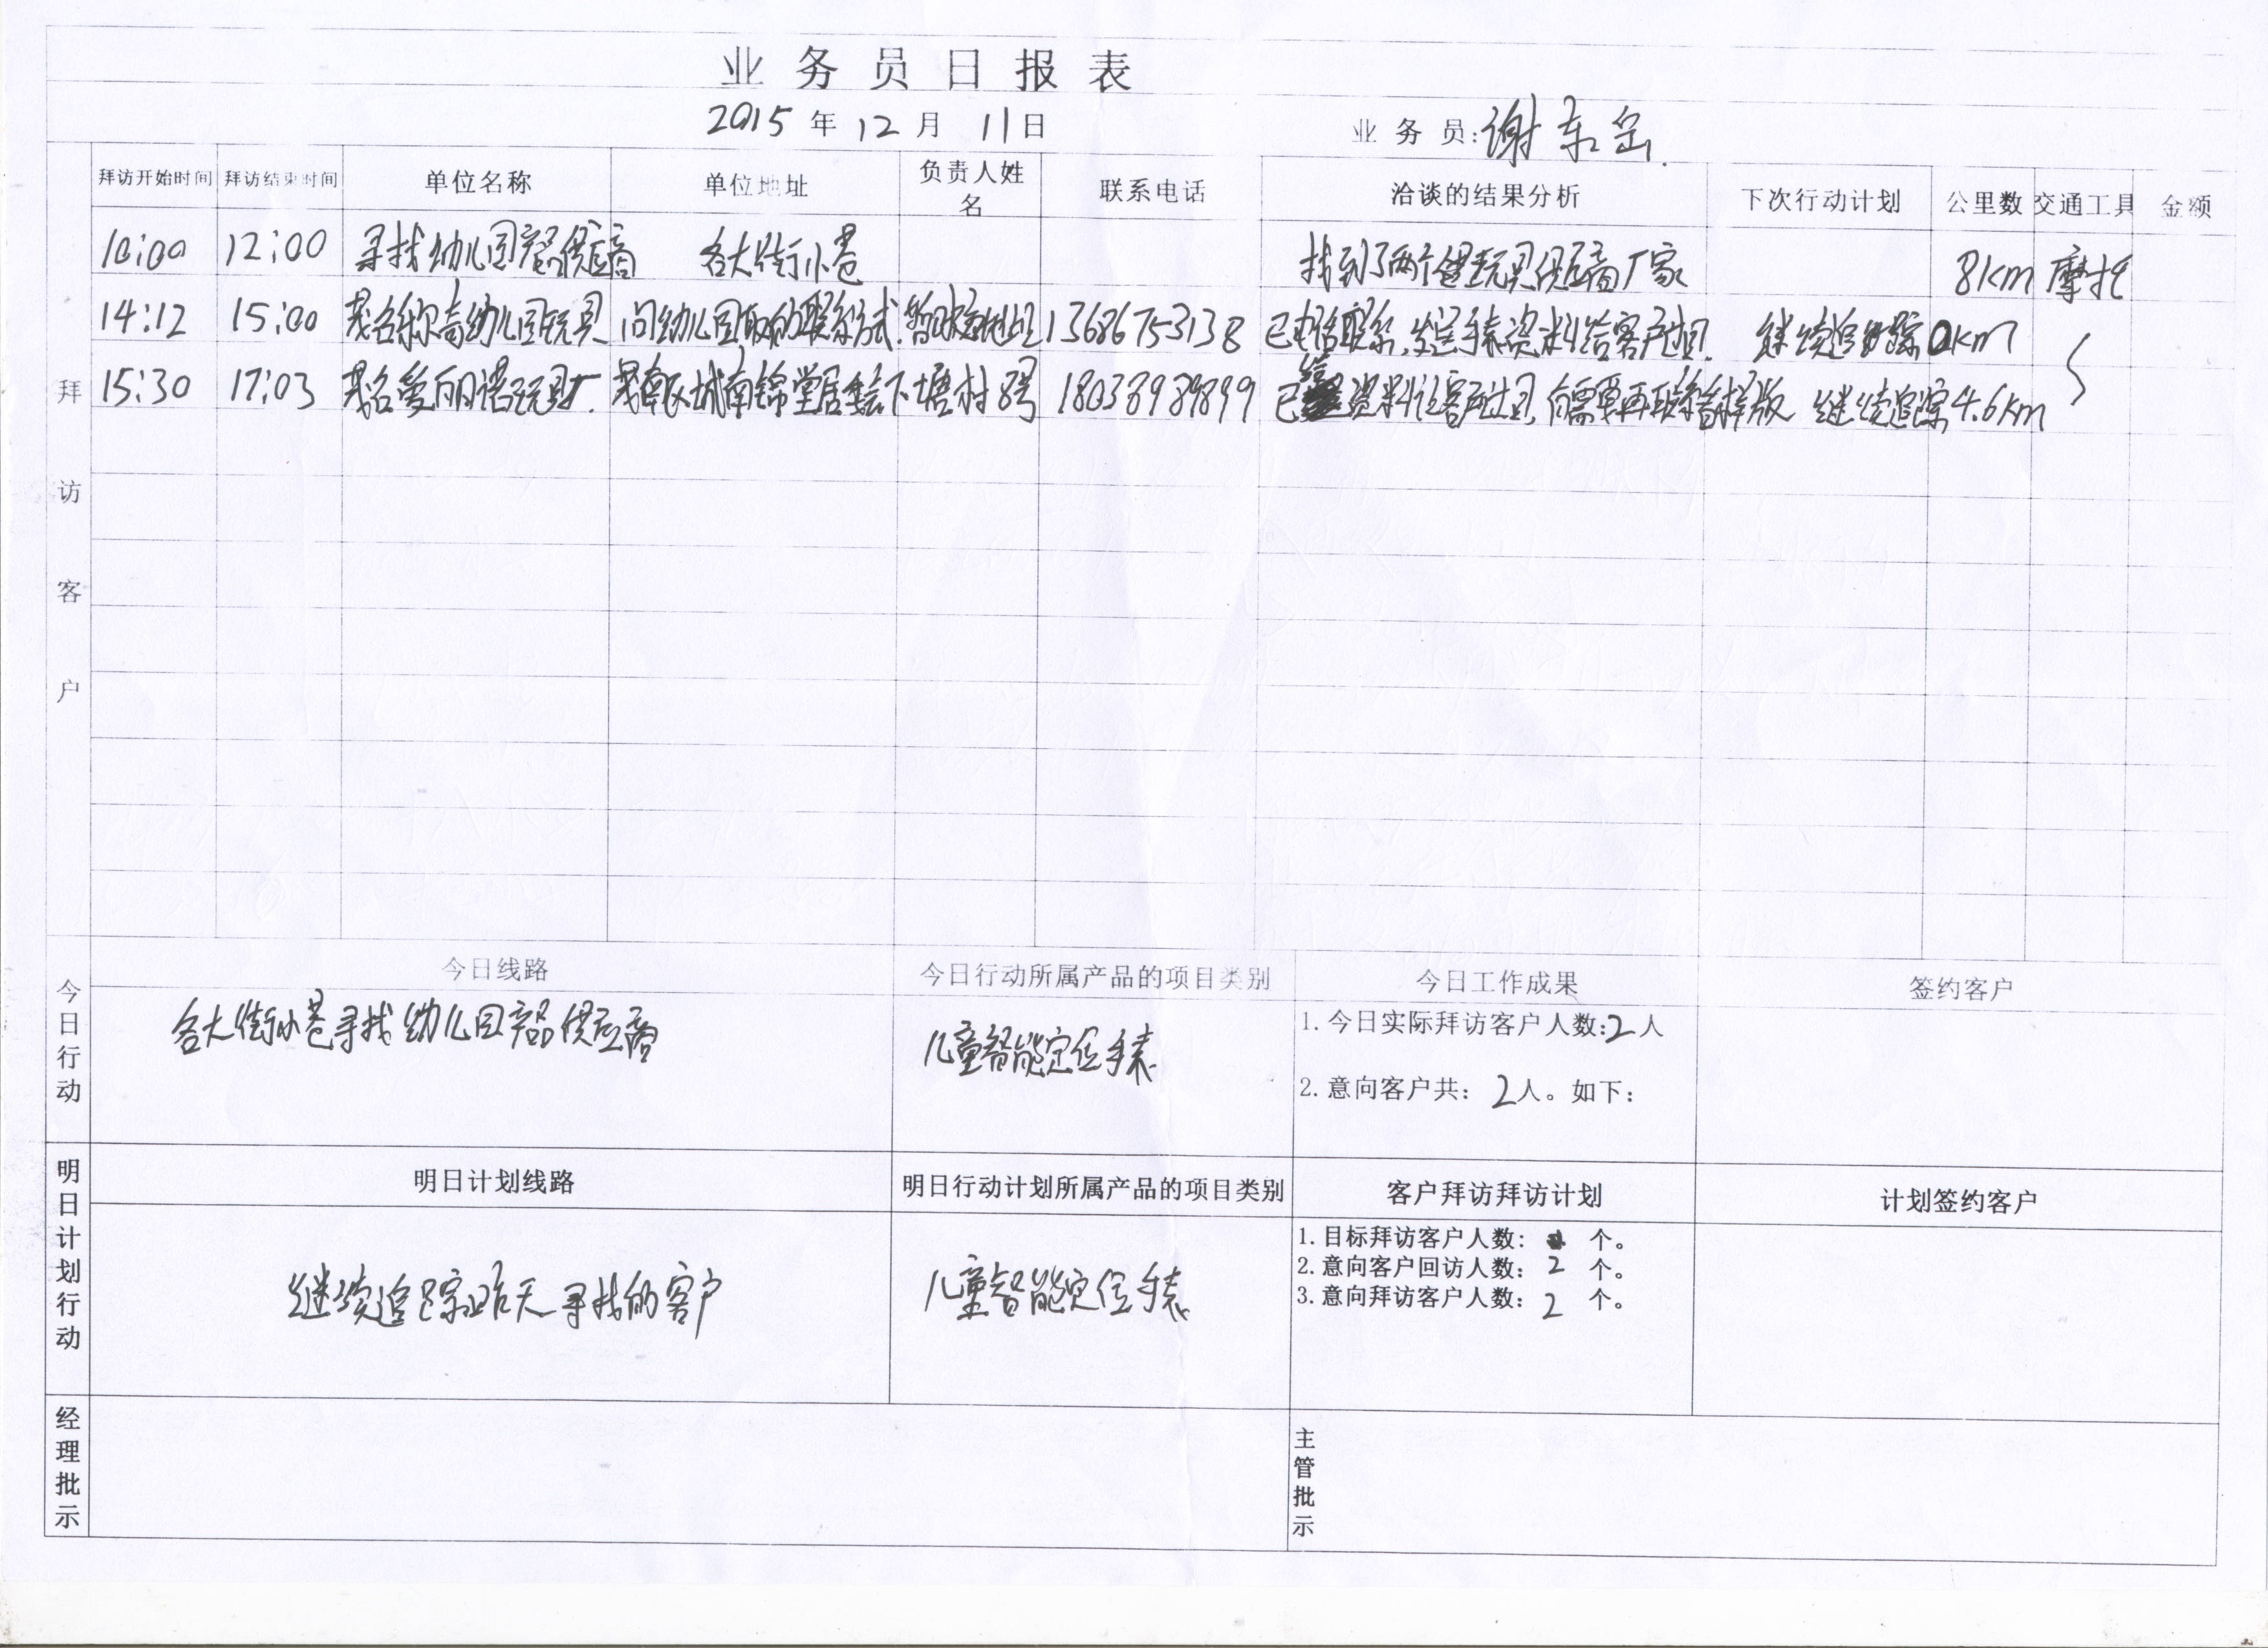 业务员日报表
2015年12月11日 业务员:谢东
拜访客户
拜访开始时间 拜访结束时间 单位名称 单位地址 负责人姓名 联系电话 洽谈的结果分析 下次行动计划 公里数 交通工具 金额
10:00 12:00 寻找幼儿园产品供应商 各大街小巷 找到了两个玩具供应商厂家 8km 摩托
14:12 15:00 茂名称奇幼儿园玩具 问幼儿园取的联系方式.暂时没地址 13686753138 已电话联系,发送手表资料给客户过目. 继续追踪 0km
15:30 17:03 茂名爱丽诺玩具厂. 茂南区城南锦堂居委会下塘村8号 18038939899 已资料让客户过目,有需要再联系看样版 继续追踪 4.6km
今日行动
今日线路 今日行动所属产品的项目类别 今日工作成果 签约客户
各大街小巷寻找幼儿园产品供应商 儿童智能定位手表
1.今日实际拜访客户人数:2人
2.意向客户共: 2人。如下:
明日计划行动
明日计划线路 明日行动计划所属产品的项目类别 客户拜访拜访计划 计划签约客户
继续追踪昨天寻找的客户 儿童智能定位手表
1.目标拜访客户人数: 个。
2.意向客户回访人数: 2 个。
3.意向拜访客户人数: 2 个。
经理批示
主管批示